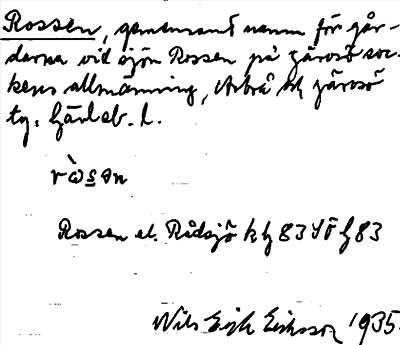 Rossen, gemensamt namn för går-
darna vid sjön Rossen på Järvsö soc-
kens allmänning, Arbrå och Järvsö
tg. Gävleb. l.
ràsən
Rossen el. Rådsjö k bl 83 SÖ bl 83
Nils Erik Eriksson 1935.